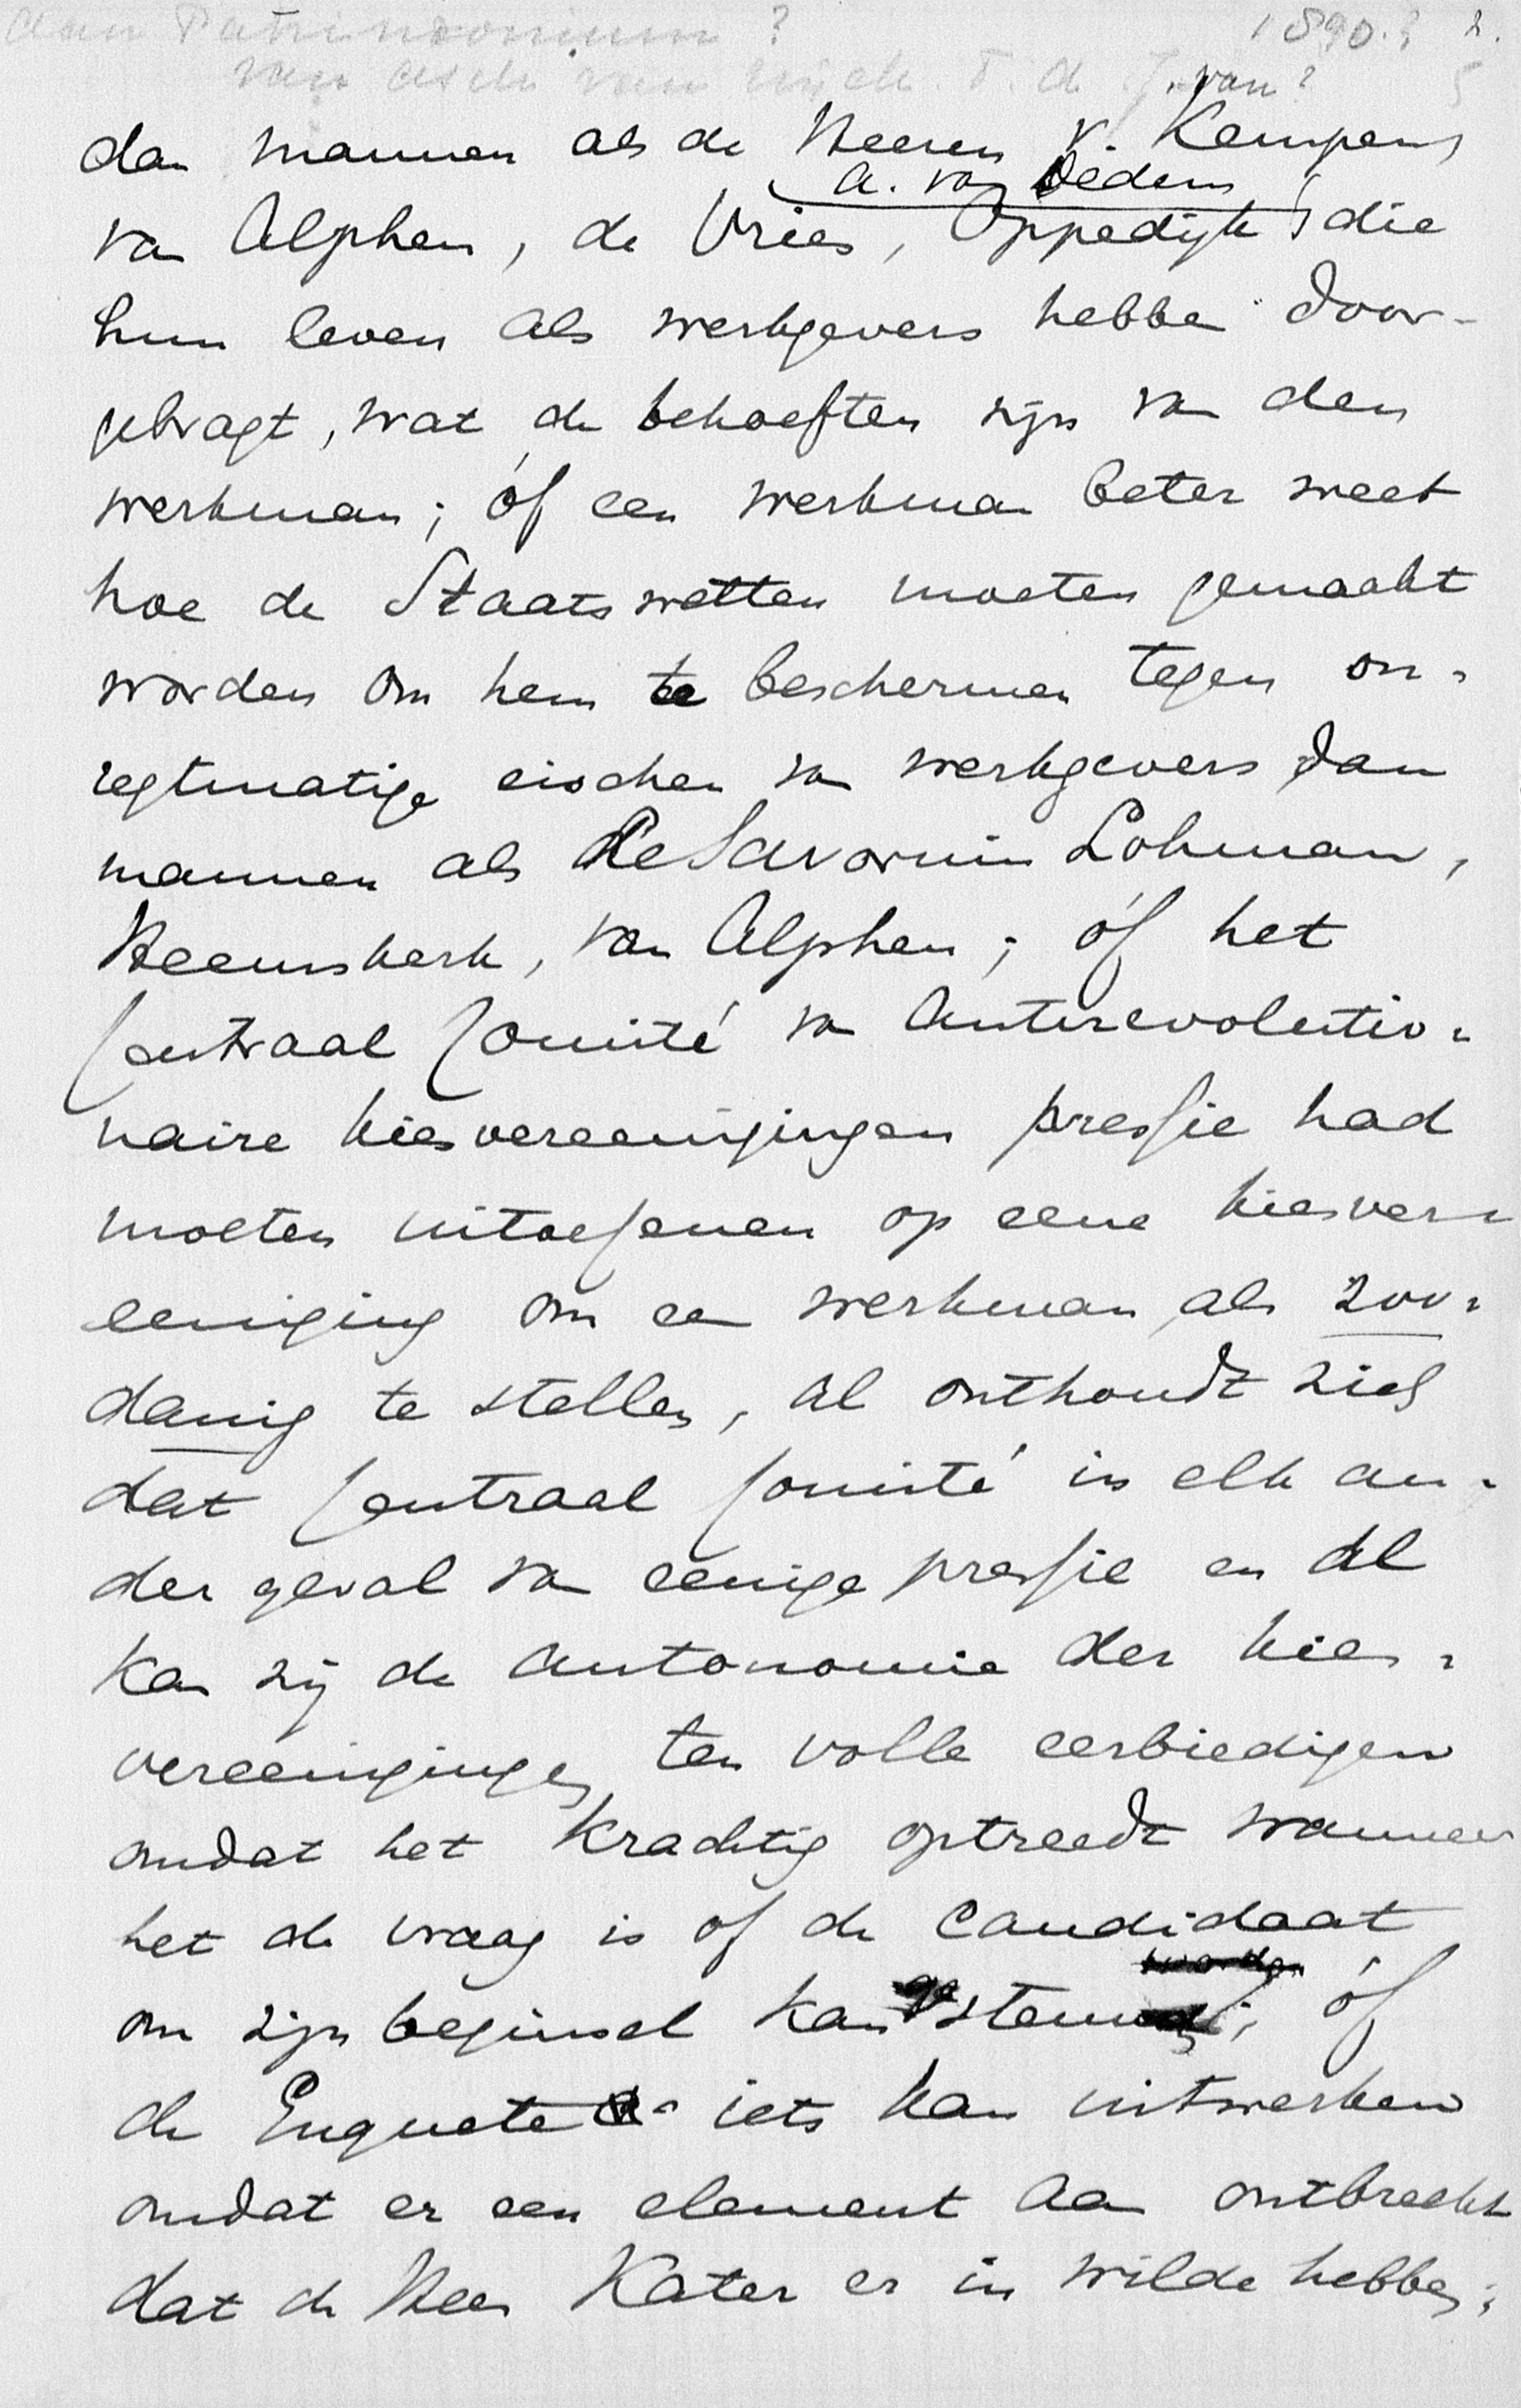 aan Patrimonium? 1890.? 2.
van asch van wijck. T. d. J. van? 5
dan mannen als de Heeren v. Kempen,
a. van Dedem
van Alphen, de Vries, Oppedijk die
hun leven als werkgevers hebben door-
gebragt, wat de behoeften zijn van den
werkman; óf een werkman beter weet
hoe de Staatswetten moeten gemaakt
worden om hem te beschermen tegen on-
regtmatige eischen van werkgevers dan
mannen als De Savornin Lohman,
Heemskerk, van Alphen; óf het
Centraal Comité van Antirevolutio-
naire kiesvereenigingen pressie had
moeten uitoefenen op eene kiesver-
eeniging om een werkman als zoo-
danig te stellen, al onthoudt zich
dat Centraal Comité in elk an-
der geval van eenige pressie en al
kan zij de autonomie der kies-
vereenigingen ten volle eerbiedigen
omdat het krachtig optreedt wanneer
het de vraag is of de Candidaat
worden
om zijn beginsel kan gestemd; óf
de Enquete iets kan uitwerken
omdat er een element aan ontbreekt
dat de Heer Kater er in wilde hebben;